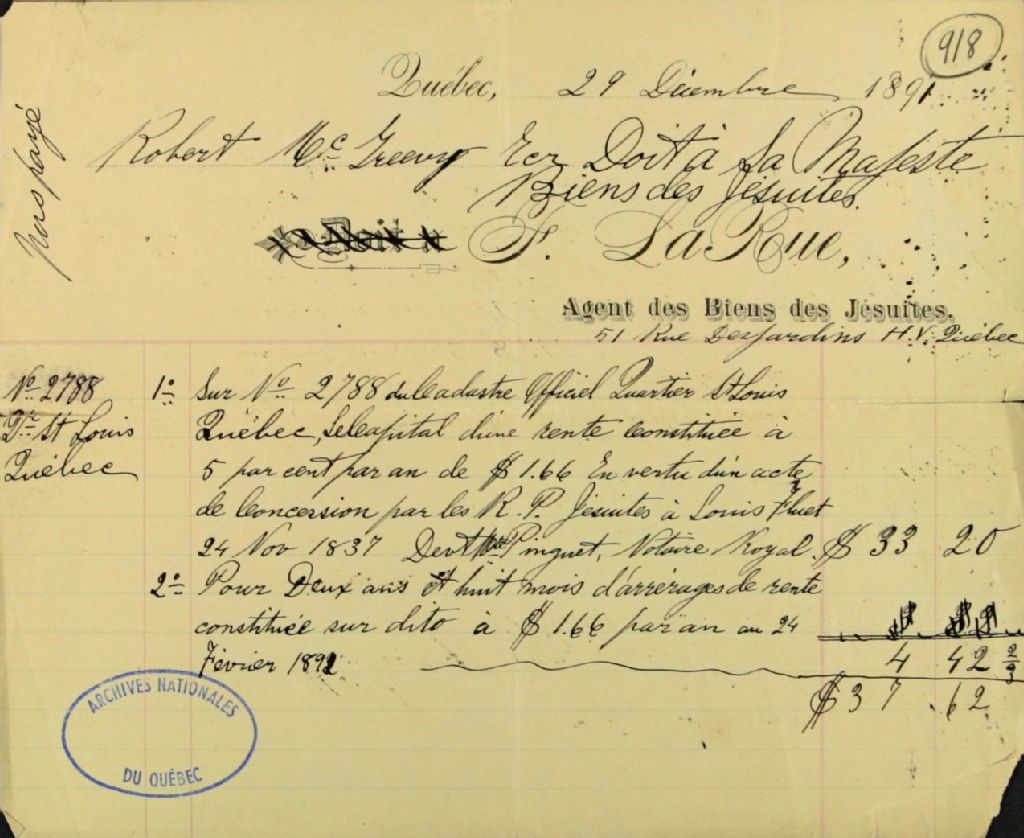 918
Québec, 29 Décembre 1891
pas payé
Robert Mc Greevy Ecr Doit à Sa Majesté
Biens des Jésuites
F. LaRue,
Agent des Biens des Jésuites.
51 Rue Desjardins H.V. Québec
No 2788
St Louis
Québec
1o Sur No 2788 du Cadastre Officiel Quartier St Louis
Québec, le capital d'une rente constituée à
5 par cent par an de $1.66 En vertu d'un acte
de Concession par les R. P. Jésuites à Louis Fluet
24 Nov 1837 Devt Pinguet, Notaire Royal. $ 33 20
2o Pour Deux ans et huit mois d'arrérages de rente
constituée sur dito à $1.66 par an au 24
Février 1892 4 42 2/3
$37.62
ARCHIVES NATIONALES
DU QUÉBEC